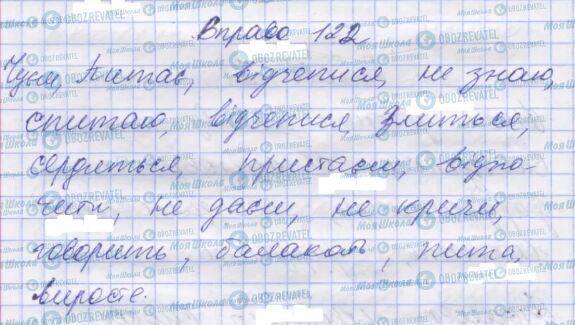 Вправа 122
Чуєш, питає, відчепися, не знаю,
спитаю, відчепися, злиться,
сердяться, пристаєш, відпо-
чити, не даєш, не кричи,
говорить, балакать, пита,
виросте.